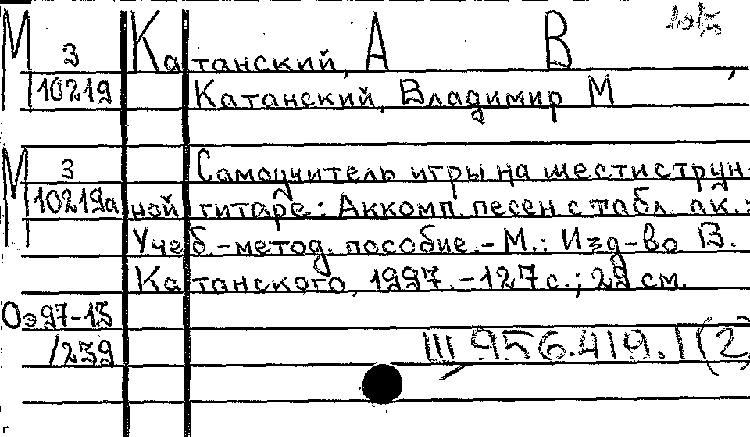 М 3 Катанский, А В
10219 Катанский, Владимир М
М 3 Самоучитель игры на шестиструн-
10219а ной гитаре: Аккомп. песен с табл. ак.:
Учеб.-метод. пособие. - М.: Изд-во В.
Катанского, 1997. - 127 с.; 29 см.
Оэ97-15
/239 III 956.419.1 (2)